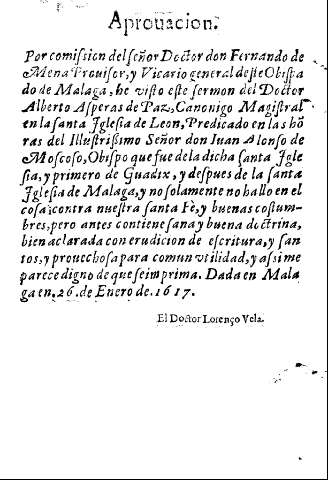 Aprouacion.
Por comission del señor Doctor don Fernando de
Mena Prouisor, y Vicario general deste Obispa
do de Malaga, he visto este sermon del Doctor
Alberto Asperas de Paz, Canonigo Magistral
en la santa Iglesia de Leon, Predicado en las hõ
ras del Illustrissimo Señor don Iuan Alonso de
Moscoso, Obispo que fue de la dicha santa Igle
sia, y primero de Guadix, y despues de la santa
Iglesia de Malaga, y no solamente no hallo en el
cosa contra nuestra santa Fè, y buenas costum-
bres, pero antes contiene sana y buena doctrina,
bien aclarada con erudicion de escritura, y san
tos, y prouechosa para comun vtilidad, y assi me
parece digno de que se imprima. Dada en Mala
ga en. 26. de Enero de. 1617.
El Doctor Lorenço Vela.